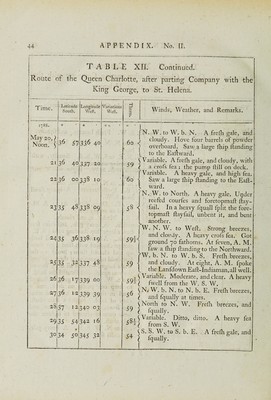 44 APPENDIX. No. II.
TABLE XII. Continued.
Route of the Queen Charlotte, after parting Company with the
King George, to St. Helena.
Time. Latitude South. Longitude West. Variation West. Therm. Winds, Weather, and Remarks.
1788.
May 20, Noon. 36 57 336 40 60 N. W. to W. b. N. A fresh gale, and
cloudy. Hove four barrels of powder
overboard. Saw a large ship standing
to the Eastward.
21 36 40 337 20 59 Variable. A fresh gale, and cloudy, with
a cross sea; the pump still on deck.
22 36 00 338 10 60 Variable. A heavy gale, and high sea.
Saw a large ship standing to the East-
ward.
23 35 48 338 09 58 N. W. to North. A heavy gale. Under
reefed courses and foretopmast stay-
sail. In a heavy squall split the fore-
topmast staysail, unbent it, and bent
another.
24 35 36 338 19 59½ W. N. W. to West. Strong breezes,
and cloudy. A heavy cross sea. Got
ground 70 fathoms. At seven, A. M.
saw a ship standing to the Northward.
25 35 32 337 48 59 W. b. N. to W. b. S. Fresh breezes,
and cloudy. At eight, A. M. spoke
the Lansdown East-Indiaman, all well.
26 36 17 339 00 59½ Variable. Moderate, and clear. A heavy
swell from the W. S. W.
27 36 12 339 59 56 N. W. b. N. to N. b. E. Fresh breezes,
and squally at times.
28 37 12 340 03 59 North to N. W. Fresh breezes, and
squally.
29 35 54 342 16 58½ Variable. Ditto, ditto. A heavy sea
from S. W.
30 34 50 345 32 54 S. S. W. to S. b. E. A fresh gale, and
squally.